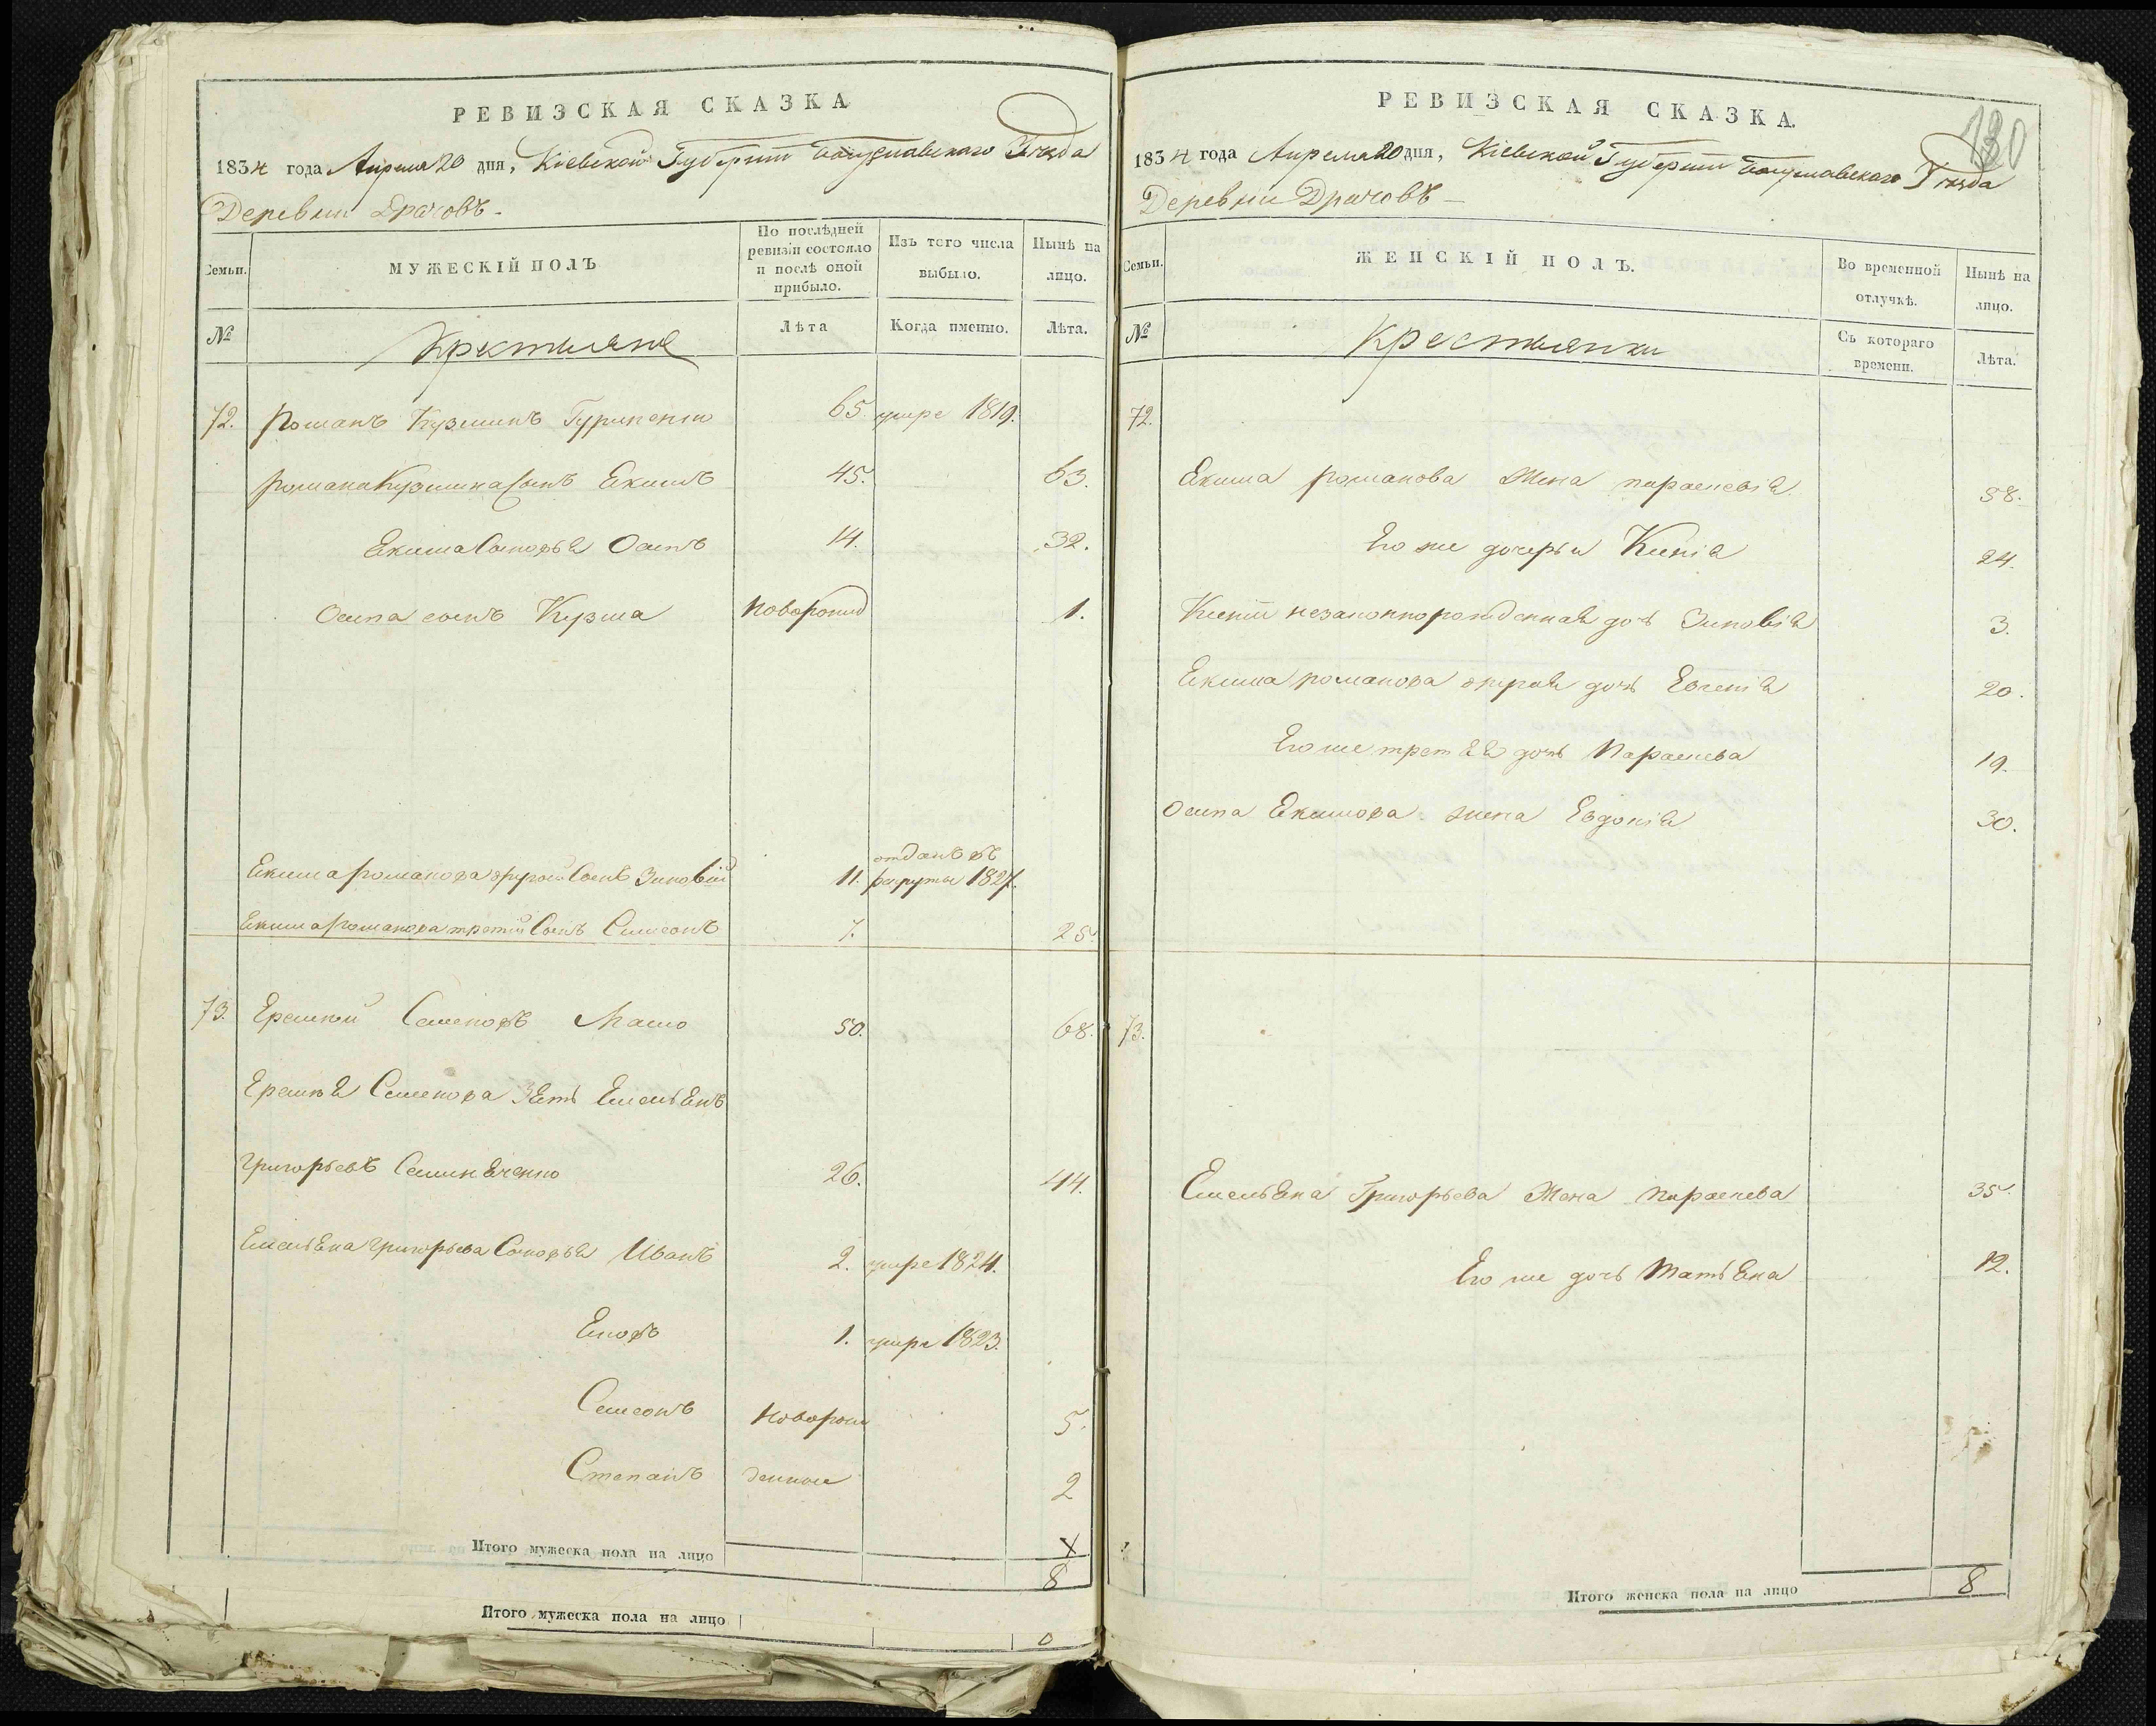 РЕВИЗСКАЯ СКАЗКА
1834 года Апреля 20 дня, Кіевской Губерніи Богуславскаго Уезда
Деревни Драчовъ
Семьи.
МУЖЕСКІЙ ПОЛЪ
По послѣдней ревизіи состояло и послѣ оной прибыло.
Изъ того числа выбыло.
Нынѣ на лицо.
№
Крестьяне
Лѣта
Когда именно.
Лѣта.
72. Романъ Кузминъ Гуриненко 65. умре 1819.
Романа Кузмина Сынъ Екимъ 45. 63.
Екима Сыновья Осипъ 14. 32.
Осипа сынъ Кузма новорожд 1.
Екима Романова другой Сынъ Зиновій 11. отданъ въ рекруты 1827.
Екима Романова третій Сынъ Симеонъ 7. 25.
73. Еремей Семеновъ 50. 68.
Еремея Семенова зять Емельянъ
Григорьевъ 26. 44.
Емельяна Григорьева Сыновья Иванъ 2. умре 1824.
Яковъ 1. умре 1823.
Симеонъ новорож 5.
Степанъ денные 2
Итого мужеска пола на лицо 8
Итого мужеска пола на лицо
РЕВИЗСКАЯ СКАЗКА.
130
1834 года Апреля 20 дня, Кіевской Губерніи Богуславскаго Уезда
Деревни Драчовъ
Семьи.
ЖЕНСКІЙ ПОЛЪ.
Во временной отлучкѣ.
Нынѣ на лицо.
№
Крестьянки
Съ котораго времени.
Лѣта.
72.
Екима Романова Жена Параскевія 58.
Его же дочерь Ксенія 24.
Ксеніи незаконнорожденная дочь Зиновія 3.
Екима Романова другая дочь Евгенія 20.
Его же третья дочь Параскева 19.
Осипа Екимова жена Евдокія 30.
73.
Емельяна Григорьева Жена Параскева 35.
Его же дочь Татьяна 12.
Итого женска пола на лицо 8